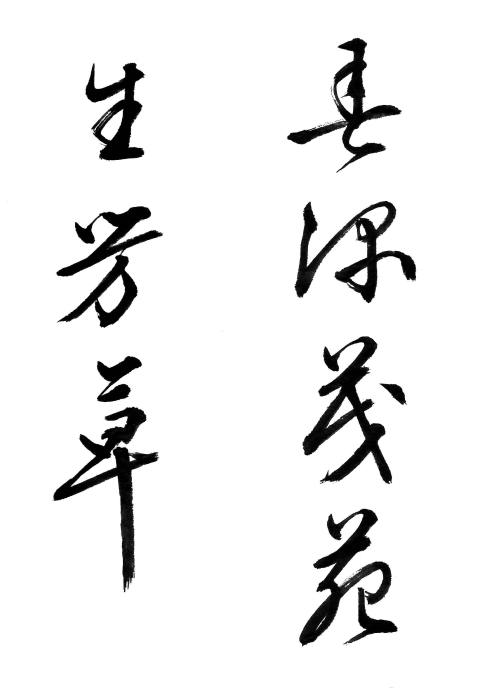 春深茂苑
生芳草